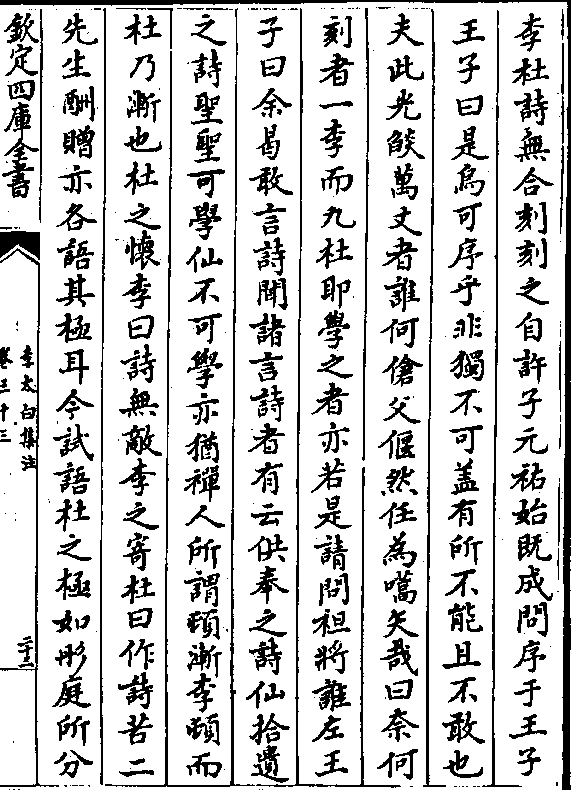 李杜詩無合刻刻之自許子元祐始既成問序于王子
王子曰是烏可序乎非獨不可蓋有所不能且不敢也
夫此光燄萬丈者誰何傖父偃然任為嚆矢哉曰奈何
刻者一李而九杜耶學之者亦若是請問袒將誰左王
子曰余曷敢言詩聞諸言詩者有云供奉之詩仙拾遺
之詩聖聖可學仙不可學亦猶禪人所謂頓漸李頓而
杜乃漸也杜之懷李曰詩無敵李之寄杜曰作詩苦二
先生酬贈亦各語其極耳今試語杜之極如彤庭所分
欽定四庫全書
李太白集注
卷三十三
二十三